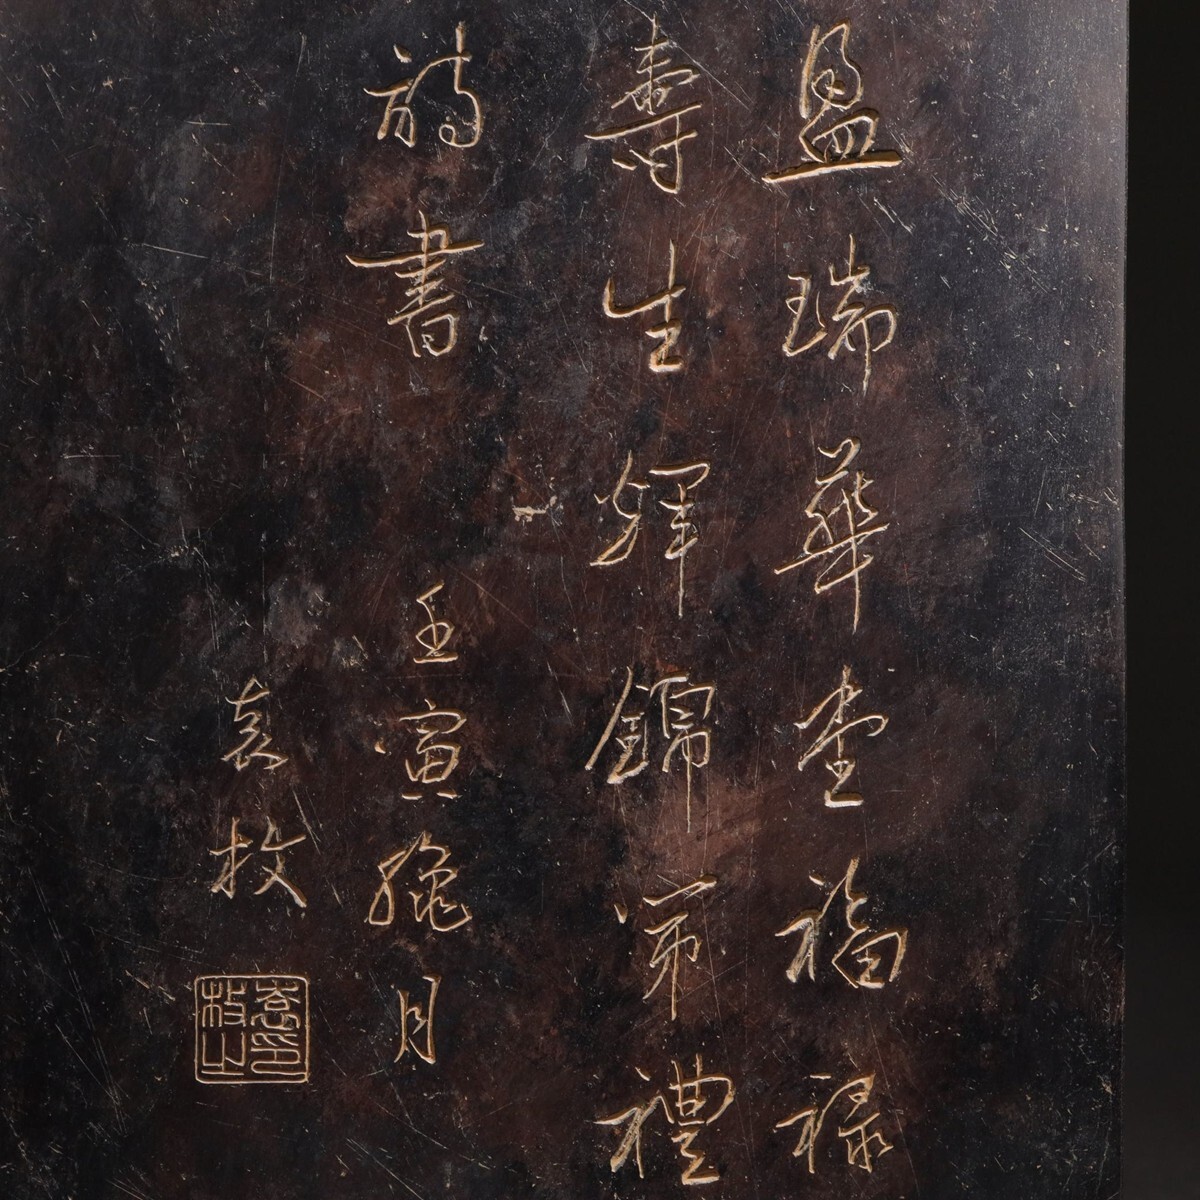 盈瑞華堂福祿
壽生輝錦第禮
詩書
壬寅月
袁枚
袁枚之印